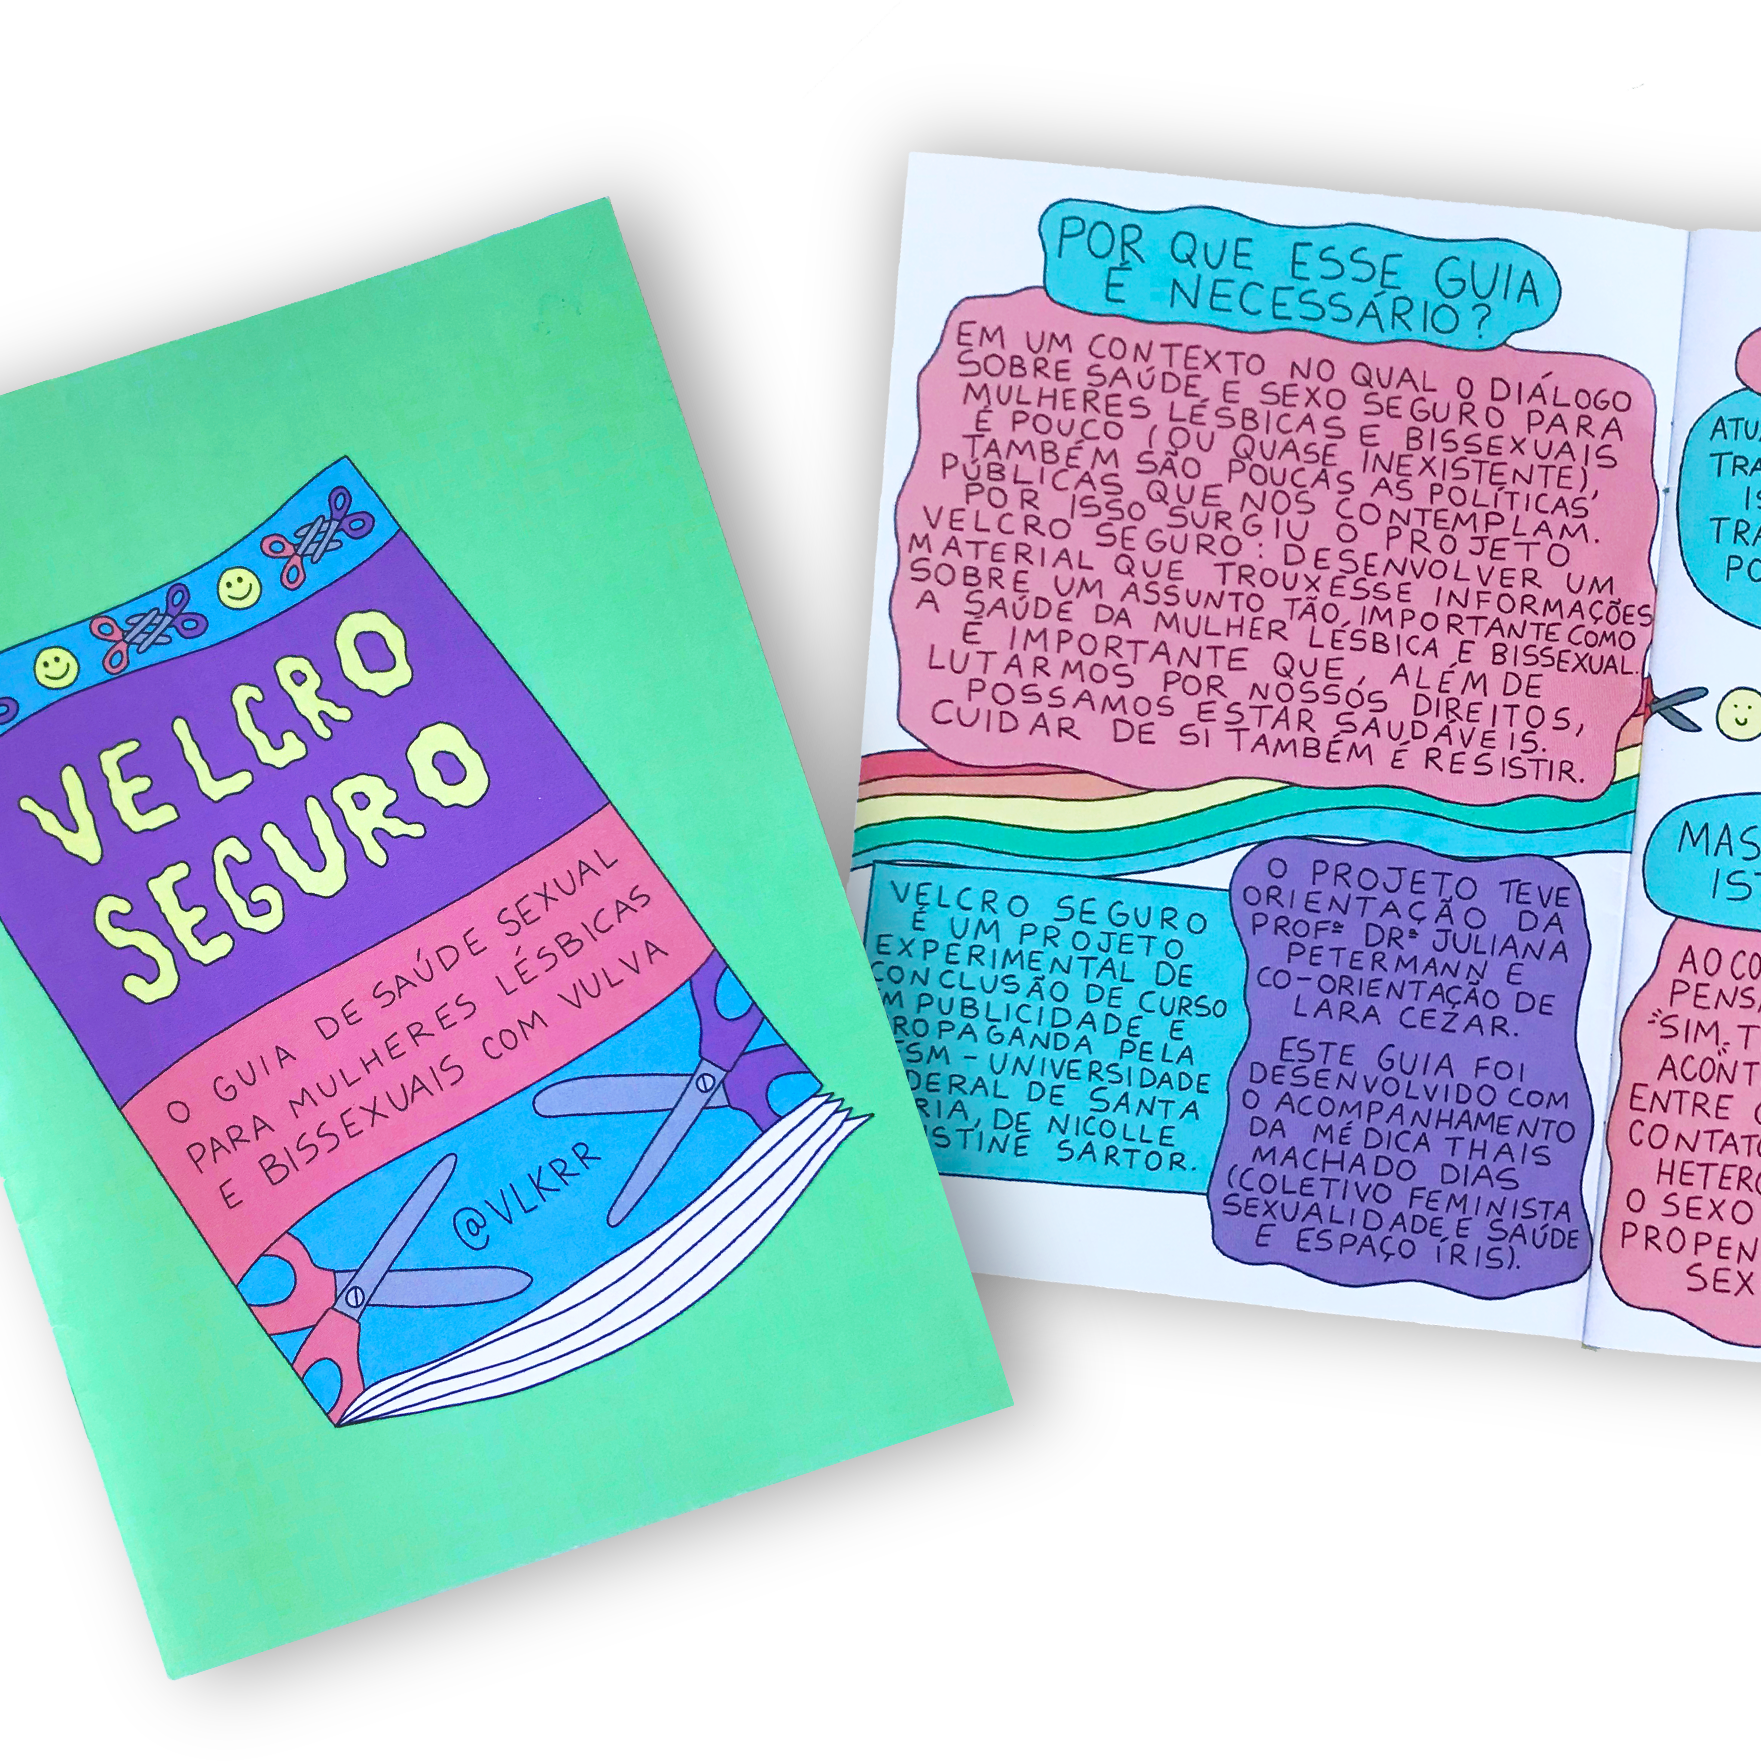 VELCRO
SEGURO
O GUIA DE SAÚDE SEXUAL
PARA MULHERES LÉSBICAS
E BISSEXUAIS COM VULVA
@VLKRR
POR QUE ESSE GUIA
É NECESSÁRIO?
EM UM CONTEXTO NO QUAL O DIÁLOGO
SOBRE SAÚDE E SEXO SEGURO PARA
MULHERES LÉSBICAS E BISSEXUAIS
É POUCO (OU QUASE INEXISTENTE),
TAMBÉM SÃO POUCAS AS POLÍTICAS
PÚBLICAS QUE NOS CONTEMPLAM.
POR ISSO SURGIU O PROJETO
VELCRO SEGURO: DESENVOLVER UM
MATERIAL QUE TROUXESSE INFORMAÇÕES
SOBRE UM ASSUNTO TÃO IMPORTANTE COMO
A SAÚDE DA MULHER LÉSBICA E BISSEXUAL.
É IMPORTANTE QUE, ALÉM DE
LUTARMOS POR NOSSOS DIREITOS,
POSSAMOS ESTAR SAUDÁVEIS.
CUIDAR DE SI TAMBÉM É RESISTIR.
VELCRO SEGURO
É UM PROJETO
EXPERIMENTAL DE
CONCLUSÃO DE CURSO
M PUBLICIDADE E
ROPAGANDA PELA
SM - UNIVERSIDADE
DERAL DE SANTA
RIA, DE NICOLLE
STINE SARTOR.
O PROJETO TEVE
ORIENTAÇÃO DA
PROFª DRª JULIANA
PETERMANN E
CO-ORIENTAÇÃO DE
LARA CEZAR.
ESTE GUIA FOI
DESENVOLVIDO COM
O ACOMPANHAMENTO
DA MÉDICA THAIS
MACHADO DIAS
(COLETIVO FEMINISTA
SEXUALIDADE E SAÚDE
E ESPAÇO ÍRIS).
ATU
TRA
IS
TRA
PO
MAS
IST
AO CO
PENS
"SIM, T
ACONT
ENTRE
CONTATO
HETERO
O SEXO
PROPEN
SEX